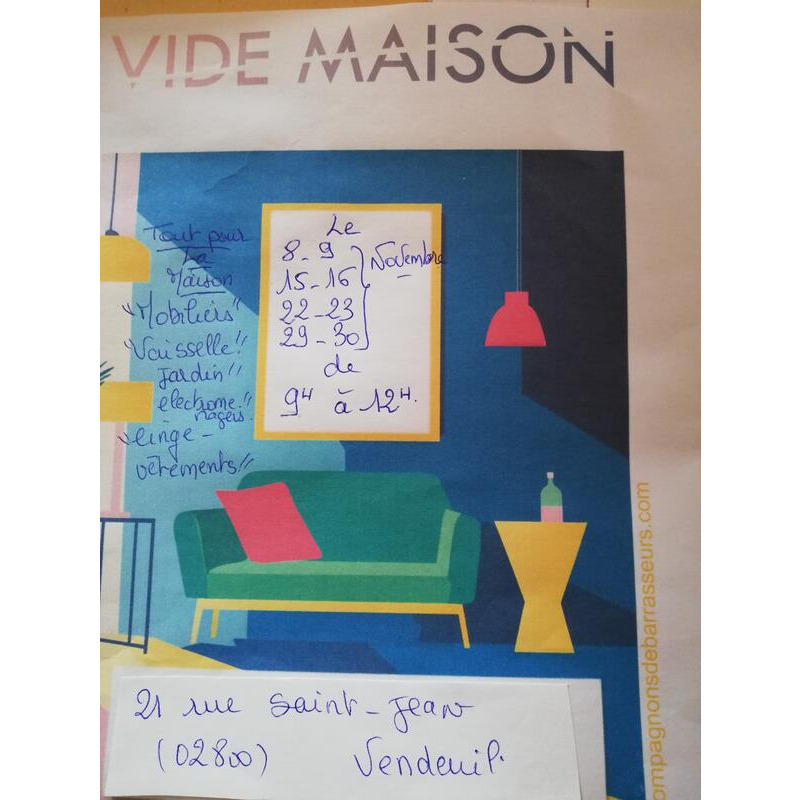 VIDE MAISON
Tout pour
La
Maison
"Mobiliers"
"Vaisselle"
Jardin"
électromé"
nagers.
"linge -
vêtements"
Le
8 - 9
15 - 16
22 - 23
29 - 30
Novembre
de
9H à 12H.
21 rue Saint-Jean
(02800) Vendeuil.
ompagnonsdebarrasseurs.com